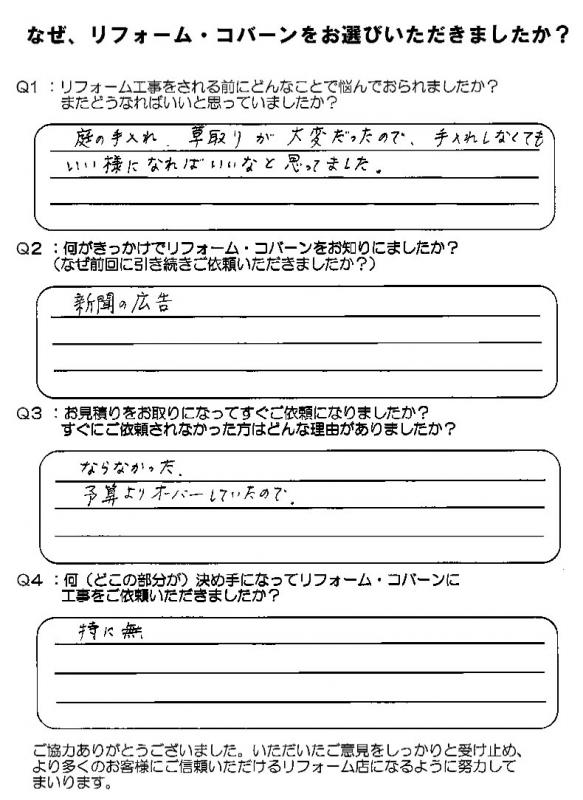 なぜ、リフォーム・コバーンをお選びいただきましたか？
Q1 ：リフォーム工事をされる前にどんなことで悩んでおられましたか？
またどうなればいいと思っていましたか？
庭の手入れ、草取りが大変だったので、手入れしなくても
いい様になればいいなと思ってました。
Q2 ：何がきっかけでリフォーム・コバーンをお知りにましたか？
（なぜ前回に引き続きご依頼いただきましたか？）
新聞の広告
Q3 ：お見積りをお取りになってすぐご依頼になりましたか？
すぐにご依頼されなかった方はどんな理由がありましたか？
ならなかった。
予算よりオーバーしていたので。
Q4 ：何（どこの部分が）決め手になってリフォーム・コバーンに
工事をご依頼いただきましたか？
特に無
ご協力ありがとうございました。いただいたご意見をしっかりと受け止め、
より多くのお客様にご信頼いただけるリフォーム店になるように努力して
まいります。